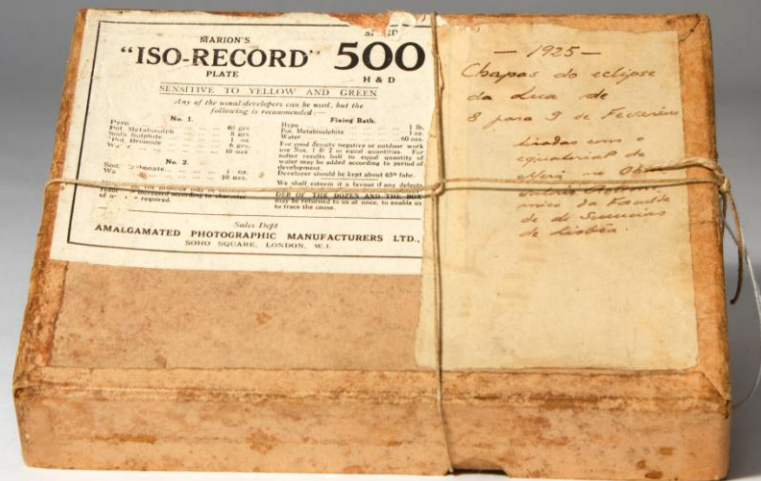 MARION'S
"ISO-RECORD"
PLATE
500
H & D
SENSITIVE TO YELLOW AND GREEN
Any of the usual developers can be used, but the
following is recommended:—
No. 1.
Pyro
Pot. Metabisulph
Soda Sulphite
Pot. Bromide
No. 2.
Fixing Bath.
Hypo 1 lb.
Pot. Metabisulphite 1 oz.
Water 40 ozs.
For good density negative or outdoor work
use Nos. 1 & 2 in equal quantities. For
softer results half to equal quantity of
water may be added according to period of
development.
Developer should be kept about 65° fahr.
We shall esteem it a favour if any defects
DER OF THE DOZEN AND THE BOX
may be returned to us at once, to enable us
to trace the cause.
Sales Dept
AMALGAMATED PHOTOGRAPHIC MANUFACTURERS LTD.,
SOHO SQUARE, LONDON, W.1.
— 1925 —
Chapas do eclipse
da Lua de
8 para 9 de Fevereiro
tiradas com o
equatorial de
no
da
de de Sciencias
de Lisboa.